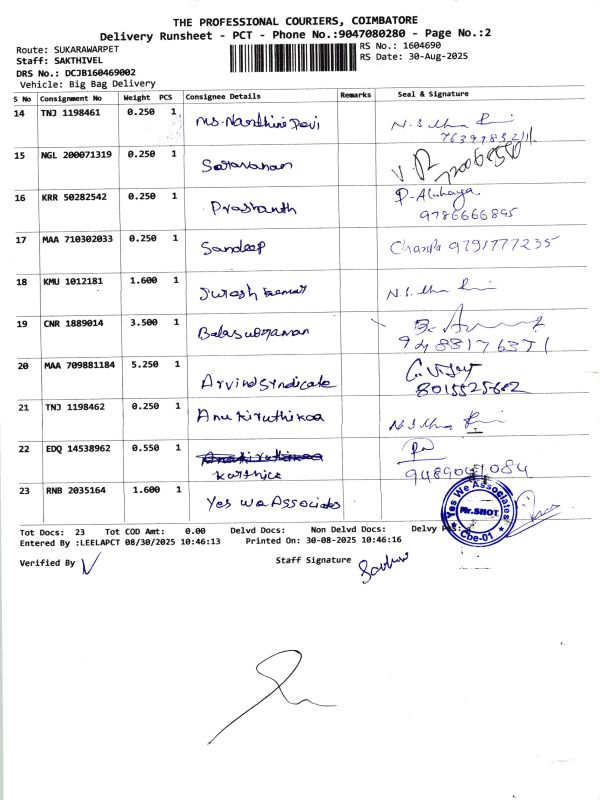 THE PROFESSIONAL COURIERS, COIMBATORE
Delivery Runsheet - PCT - Phone No.:9047080280 - Page No.:2
Route: SUKARAWARPET RS No.: 1604690
Staff: SAKTHIVEL RS Date: 30-Aug-2025
DRS No.: DCJB160469002
Vehicle: Big Bag Delivery
S No Consignment No Weight PCS Consignee Details Remarks Seal & Signature
14 TNJ 1198461 0.250 1 Ms. Nandhini Devi
15 NGL 200071319 0.250 1 Saravanan
16 KRR 50282542 0.250 1 Prashanth
9786666895
17 MAA 710302033 0.250 1 Sandeep 9791777235
18 KMU 1012181 1.600 1 Suresh kumar
19 CNR 1889014 3.500 1 Balasubraman
9488176371
20 MAA 709881184 5.250 1 Arvind Syndicate
8015525682
21 TNJ 1198462 0.250 1 Anu kiruthikaa
22 EDQ 14538962 0.550 1 Karthica
9489041084
23 RNB 2035164 1.600 1 Yes we Associates
Yes We Associates
Mr.SHOT
Cbe-01
Tot Docs: 23 Tot COD Amt: 0.00 Delvd Docs: Non Delvd Docs: Delvy
Entered By :LEELAPCT 08/30/2025 10:46:13 Printed On: 30-08-2025 10:46:16
Verified By Staff Signature